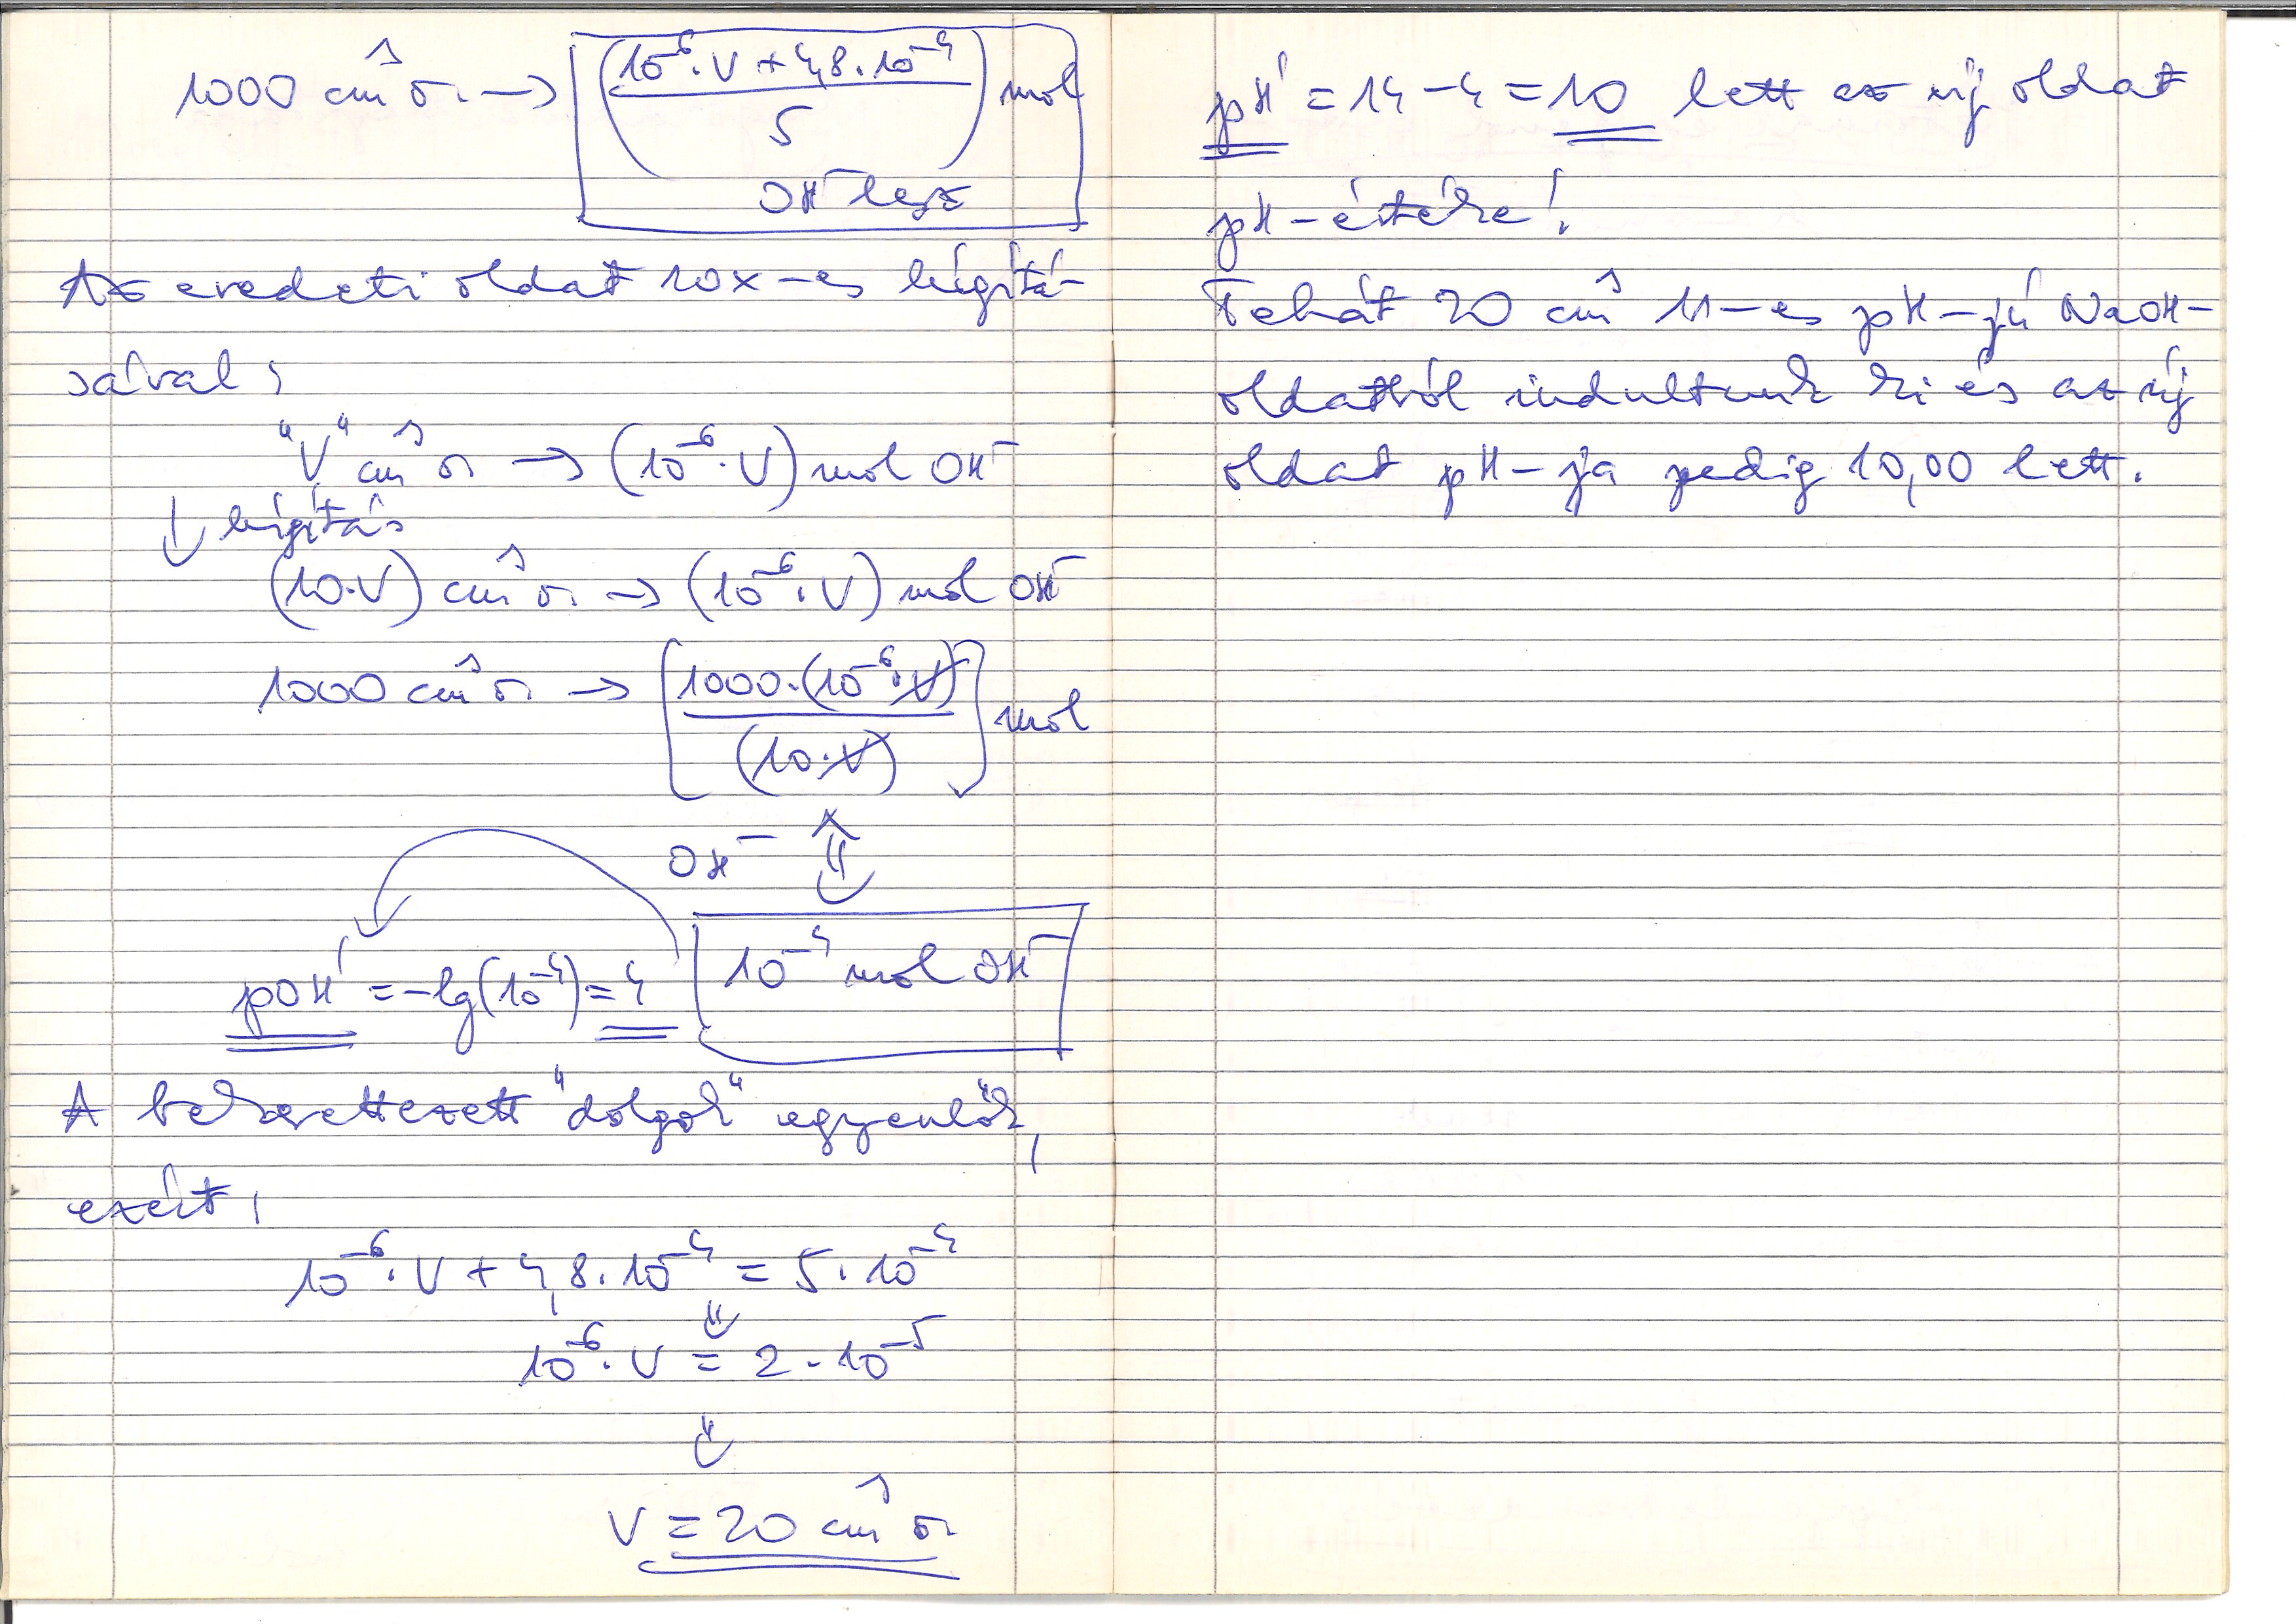 1000 cm³ o. → [((10⁻⁶·V + 4,8·10⁻⁴) / 5) mol
OH⁻ lesz]
Az eredeti oldat 10x-es hígítá-
sával:
"V" cm³ o. → (10⁻⁶·V) mol OH⁻
↓ hígítás
(10·V) cm³ o. → (10⁻⁶·V) mol OH⁻
1000 cm³ o. → [1000·(10⁻⁶·V) / (10·V)] mol
OH⁻ ⇓
pOH' = -lg(10⁻⁴) = 4 [10⁻⁴ mol OH⁻]
A bekerettezett "dolgok" egyenlők,
ezért:
10⁻⁶·V + 4,8·10⁻⁴ = 5·10⁻⁴
⇓
10⁻⁶·V = 2·10⁻⁵
⇓
V = 20 cm³ o.
pH' = 14 - 4 = 10 lett az új oldat
pH-értéke!
Tehát 20 cm³ 11-es pH-jú NaOH-
oldatból indultunk ki és az új
oldat pH-ja pedig 10,00 lett.